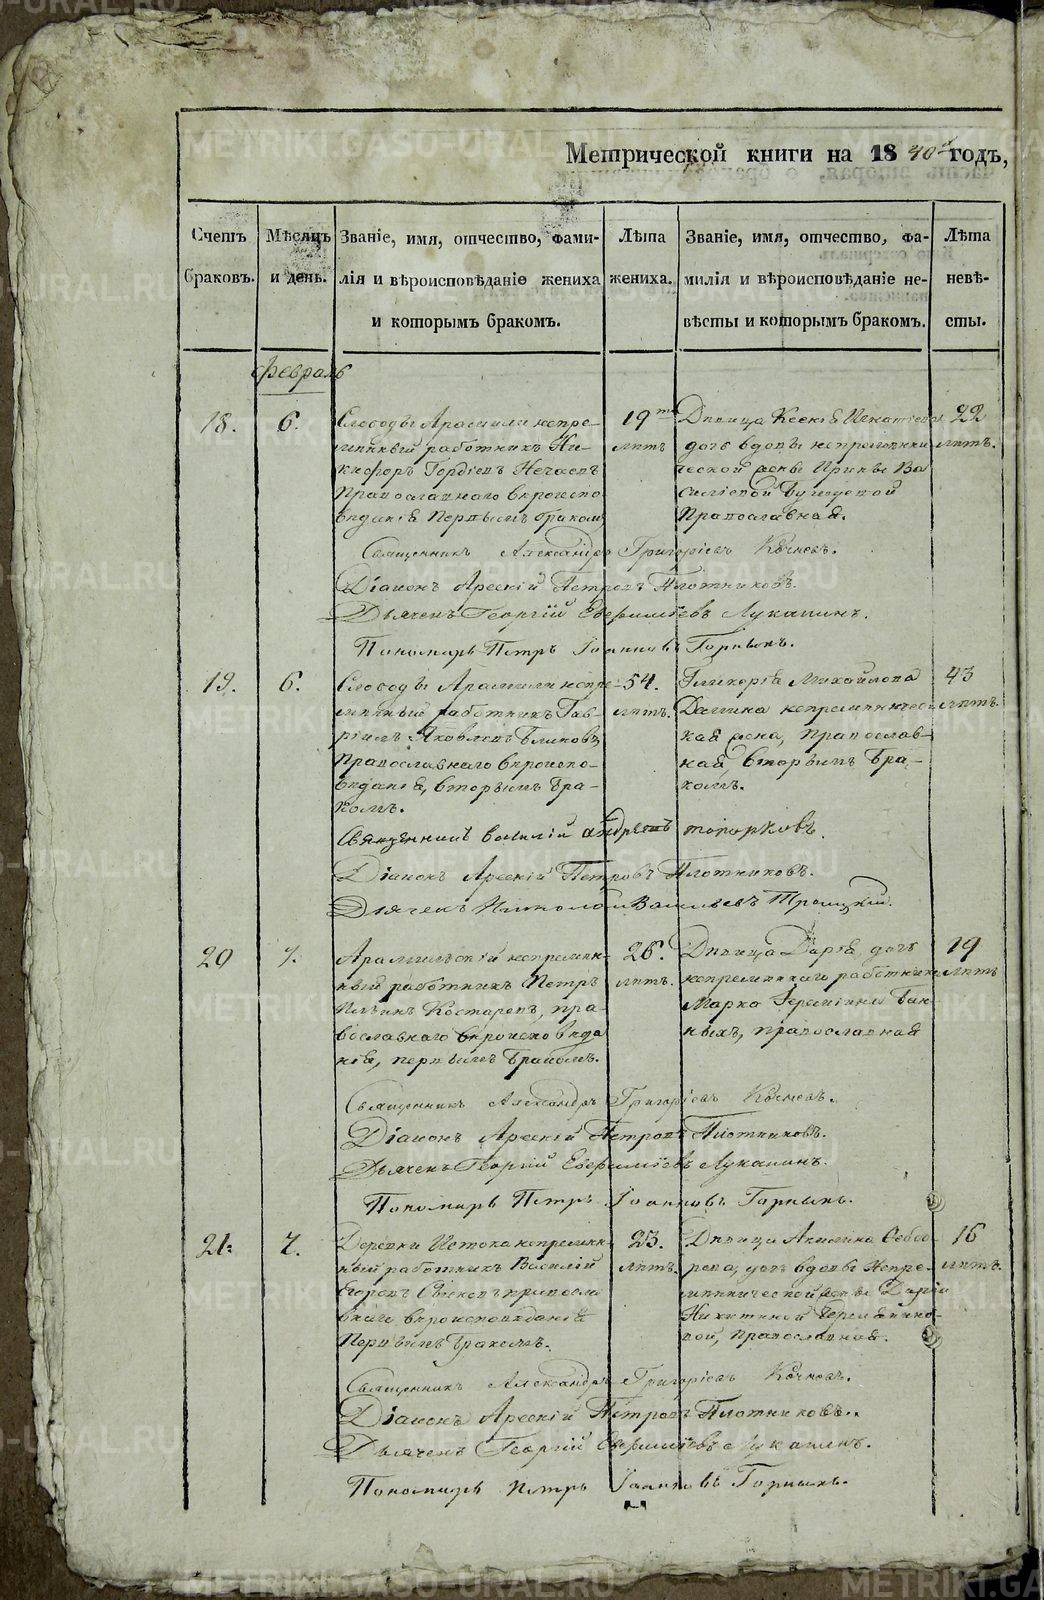 Метрической книги на 1840й годъ,
Счетъ браковъ.
Мѣсяцъ и день.
Званіе, имя, отчество, фами-
лія и вѣроисповѣданіе жениха
и которымъ бракомъ.
Лѣта
жениха.
Званіе, имя, отчество, фа-
милія и вѣроисповѣданіе не-
вѣсты и которымъ бракомъ.
Лѣта
невѣ-
сты.
Февраль
18.
6.
Слободы Арамили непре-
мѣнный работникъ Ни-
кифоръ Гордѣевъ Нечаевъ
Православнаго вѣроиспо
вѣданія Первымъ бракомъ
19ти
лѣтъ
Дѣвица Ксенія Игнатіева
дочь вдовы непремѣнни
ческой жены Ирины Ва
силіевой
Православная.
22
лѣтъ.
Священникъ Александръ Григоріевъ Кочневъ.
Діаконъ Арсеній Петровъ Плотниковъ.
Дьячекъ Георгій Евфиміевъ Лукапинъ.
Пономарь Петръ Іоанновъ Горныхъ.
19.
6.
Слободы Арамили непре-
мѣнный работникъ Гав-
ріилъ Яковлевъ Блиновъ
Православнаго вѣроиспо-
вѣданія, вторымъ бра-
комъ.
54.
лѣтъ.
Гликерія Михайлова
непремѣнничес
кая жена, Православ-
ная, вторымъ бра-
комъ.
43
лѣтъ.
Священникъ Василій Андреевъ Топорковъ.
Діаконъ Арсеній Петровъ Плотниковъ.
Дьячекъ Николай Васильевъ Троицкій.
20
7.
Арамильскій непремѣн-
ный работникъ Петръ
Ильинъ Костаревъ, пра-
вославнаго вѣроисповѣда
нія, первымъ бракомъ.
26.
лѣтъ.
Дѣвица Дарія дочь
непремѣннаго работника
Марка Іереміина Бан-
ныхъ, православная
19
лѣтъ
Священникъ Александръ Григоріевъ Кочневъ.
Діаконъ Арсеній Петровъ Плотниковъ.
Дьячекъ Георгій Евфиміевъ Лукапинъ.
Пономарь Петръ Іоанновъ Горныхъ.
21:
7.
Деревни Истока непремѣн-
ный работникъ Василій
Егоровъ православ
наго вѣроисповѣданія
Первымъ бракомъ.
23.
лѣтъ.
Дѣвица Акилина Ѳедо-
рова, дочь вдовы Непре-
мѣннической жены Даріи
Никитиной
вой, православная.
16
лѣтъ.
Священникъ Александръ Григоріевъ Кочневъ.
Діаконъ Арсеній Петровъ Плотниковъ.
Дьячекъ Георгій Евфиміевъ Лукапинъ.
Пономарь Петръ Іоанновъ Горныхъ.
METRIKI.GASO-URAL.RU